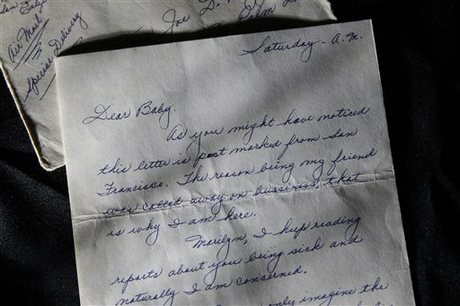 San Fran
Air Mail
Special Delivery
Joe D.
Palm
Saturday - A.M.
Dear Baby.
As you might have noticed
this letter is post marked from San
Francisco. The reason being my friend
was called away on bussiness, that
is why I am here.
Marilyn, I keep reading
reports about you being sick and
naturally I am concerned.
only imagine the